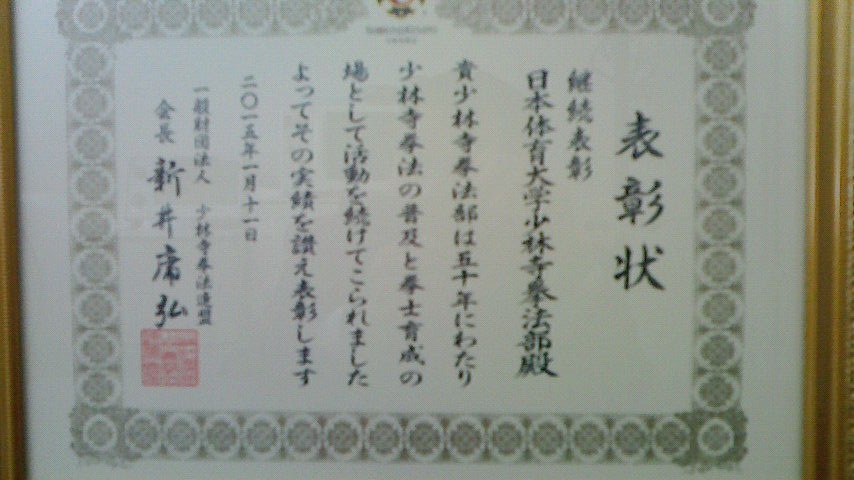 表彰状
継続表彰
日本体育大学少林寺拳法部殿
貴少林寺拳法部は五十年にわたり
少林寺拳法の普及と拳士育成の
場として活動を続けてこられました
よってその実績を讃え表彰します
二〇一五年一月十一日
一般財団法人 少林寺拳法連盟
会長 新井庸弘